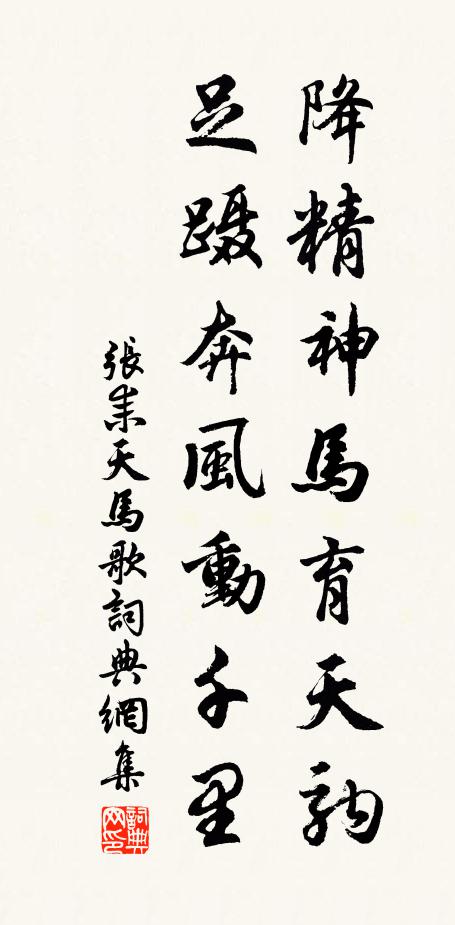 降精神馬育天駟
足蹑奔風動千里
張耒天馬歌詞典網集
詞典网印